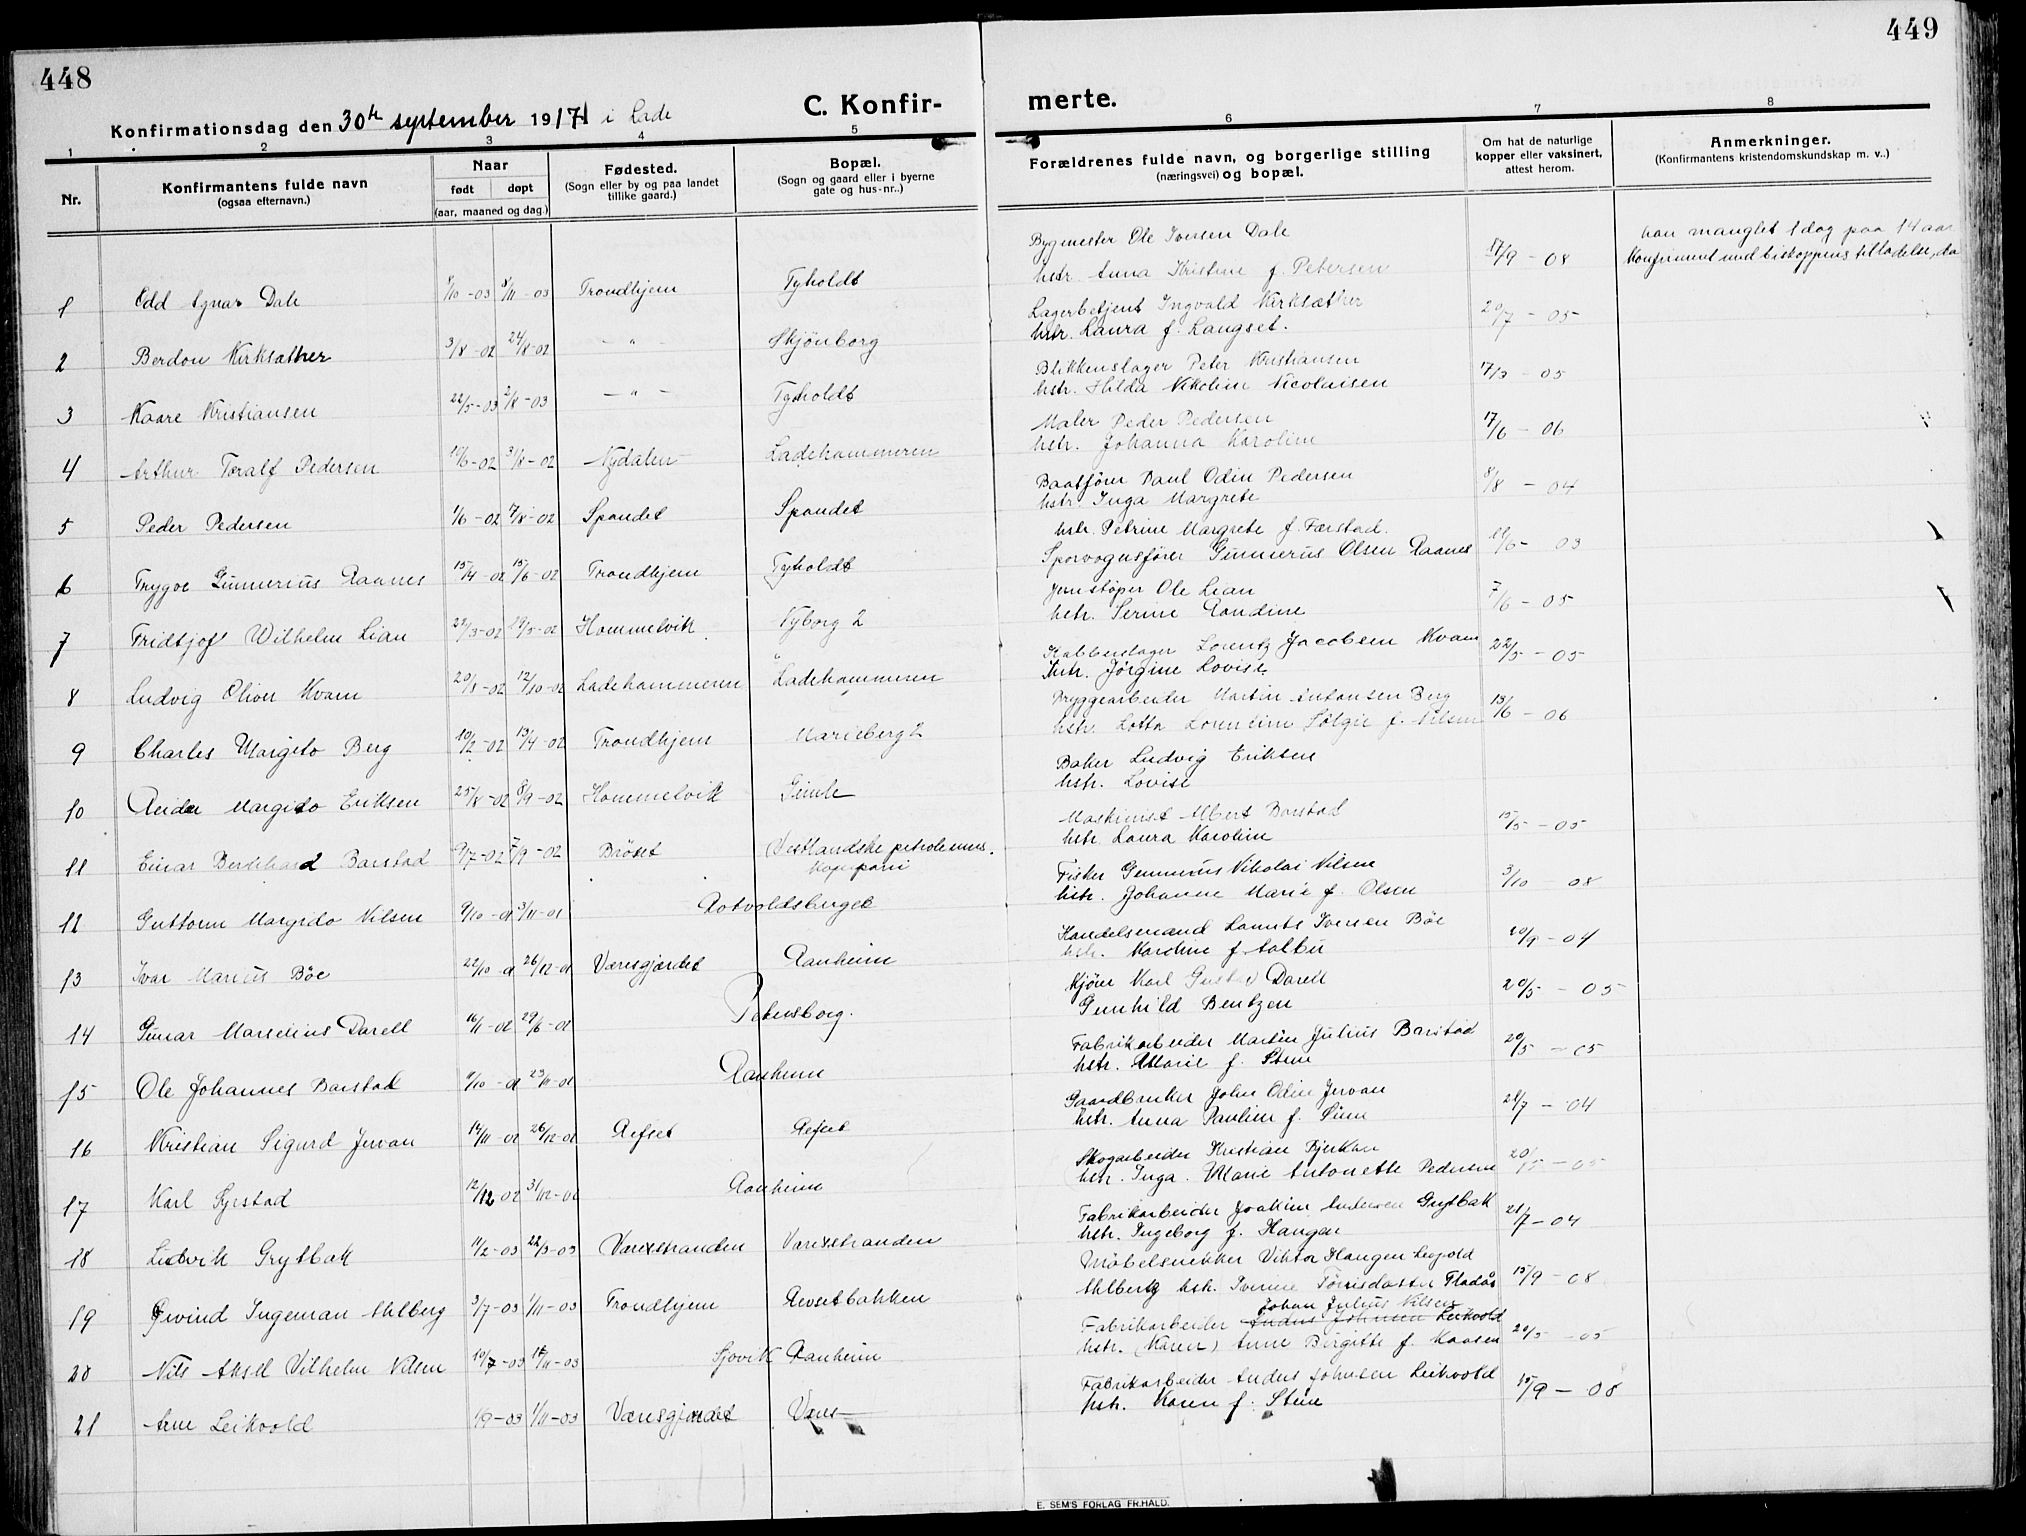 448
Konfirmationsdag den 30te september 1917 i Lade
C. Konfir-
1 2 3 4 5
Nr.
Konfirmantens fulde navn
(ogsaa efternavn.)
Naar
født døpt
(aar, maaned og dag.)
Fødested.
(Sogn eller by og paa landet
tillike gaard.)
Bopæl.
(Sogn og gaard eller i byerne
gate og hus-nr..)
1 Odd Dale 8/10-03 8/11-03 Trondhjem Tyholdt
2 Berdon Kirksæther 3/8-02 24/8-02 -"- Skjönborg
3 Kaare Kristiansen 22/5-03 2/8-03 -"- Tyholdt
4 Arthur Toralf Pedersen 10/6-02 31/8-02 Nydalen Ladehammeren
5 Peder Pedersen 1/6-02 17/8-02 Spandet Spandet
6 Trygve Gunnerius Raanes 15/4-02 15/6-02 Trondhjem Tyholdt
7 Fridtjof Wilhelm Lian 22/3-02 19/5-02 Hommelvik Nyborg 2
8 Ludvig Oliver Kvam 20/8-02 12/10-02 Ladehammeren Ladehammeren
9 Charles Margido Berg 10/2-02 13/4-02 Trondhjem Marieberg 2
10 Reidar Margido Eriksen 25/8-02 8/9-02 Hommelvik Gimle
11 Einar Bernhard Barstad 9/7-02 7/9-02 Bröset Vestlandske petroleums.
kompani
12 Guttorm Margido Nilsen 9/10-01 3/11-01 Rotvoldsberget
13 Ivar Marius Böe 22/10-01 26/12-01 Væresgjærdet Ranheim
14 Gunar Marenius Darell 16/11-01 29/6-01 Petersborg.
15 Ole Johannes Barstad 9/10-01 23/11-01 Ranheim
16 Kristian Sigurd Jervan 14/11-02 26/12-02 Refset Refset
17 Karl 12/12-02 31/12-02 Ranheim
18 Ludvik Grytbak 11/2-03 22/3-03 Værestranden Værestranden
19 Øivind Ingeman Ahlberg 3/7-03 1/11-03 Trondhjem Reversbakken
20 Nils Aksel Vilhelm Nilsen 10/7-03 18/11-03 Sjovik Ranheim
21 Arne Leikvold 1/9-03 1/11-03 Væresgjærdet Være
449
merte.
6 7 8
Forældrenes fulde navn, og borgerlige stilling
(næringsvei) og bopæl.
Om hat de naturlige
kopper eller vaksinert,
attest herom.
Anmerkninger.
(Konfirmantens kristendomskundskap m. v..)
Bygmester Ole Iversen Dale
hstr. Anna Kristine f. Petersen 17/9-08
han manglet 1 dag paa 14 aar
Konfirmert med biskoppens tilladelse, da
Lagerbetjent Ingvald Kirksæther
hstr. Laura f. Langset. 20/7-05
Blikkenslager Peter Kristiansen
hstr. Hilda Nikoline Nicolaisen 17/3-05
Maler Peder Pedersen
hstr. Johanna Karoline 17/6-06
Baatfören Paul Odin Pedersen
hstr. Inga Margrete 8/8-04
hstr. Petrine Margrete f. Færstad.
Sporvognsfører Gunnerius Olsen Raanes 19/6-03
Jernstøper Ole Lian
hstr. Serine Randine 7/6-05
Lorentz Jacobsen Kvam
hstr. Jørgine Lovise 22/5-05
Bryggearbeider Martin Antonsen Berg
hstr. Lotta Lorentine f. Nilsen 13/6-06
Baker Ludvig Eriksen
hstr. Lovise
Maskinist Albert Barstad
hstr. Laura Karoline 15/5-05
Fisker Gunnerius Nikolai Nilsen
hstr. Johanne Marie f. Olsen 3/10 08
Handelsmand Iversen Böe
hstr. Karoline f. 20/9-04
Kjører Karl Gustav Darell
Gunhild Bentzen 20/5-05
Fabrikarbeider Martin Julius Barstad
hstr. Marie f. Stene 20/5-05
Gaardbruker John Odin Jervan
hstr. Anna Pauline f. 21/7-04
Skogarbeider Kristian
hstr. Inga Marie Antonette Pedersen 20/5-05
Fabrikarbeider Joakim Andersen Grytbak
hstr. Ingeborg f. Haugan 21/7-04
Møbelsnekker Viktor Haugen Leopold
Ahlberg hstr. Iverine Tørrisdatter Fladås 15/9-08
Johan Julius Nilsen
Fabrikarbeider Anders Johnsen Leikvold
hstr. (Karen) Anne Birgitte f. Kaasen 20/5-05
Fabrikarbeider Anders Johnsen Leikvold
hstr. Karen f. Stene 15/9-08
E. SEM'S FORLAG FR.HALD.